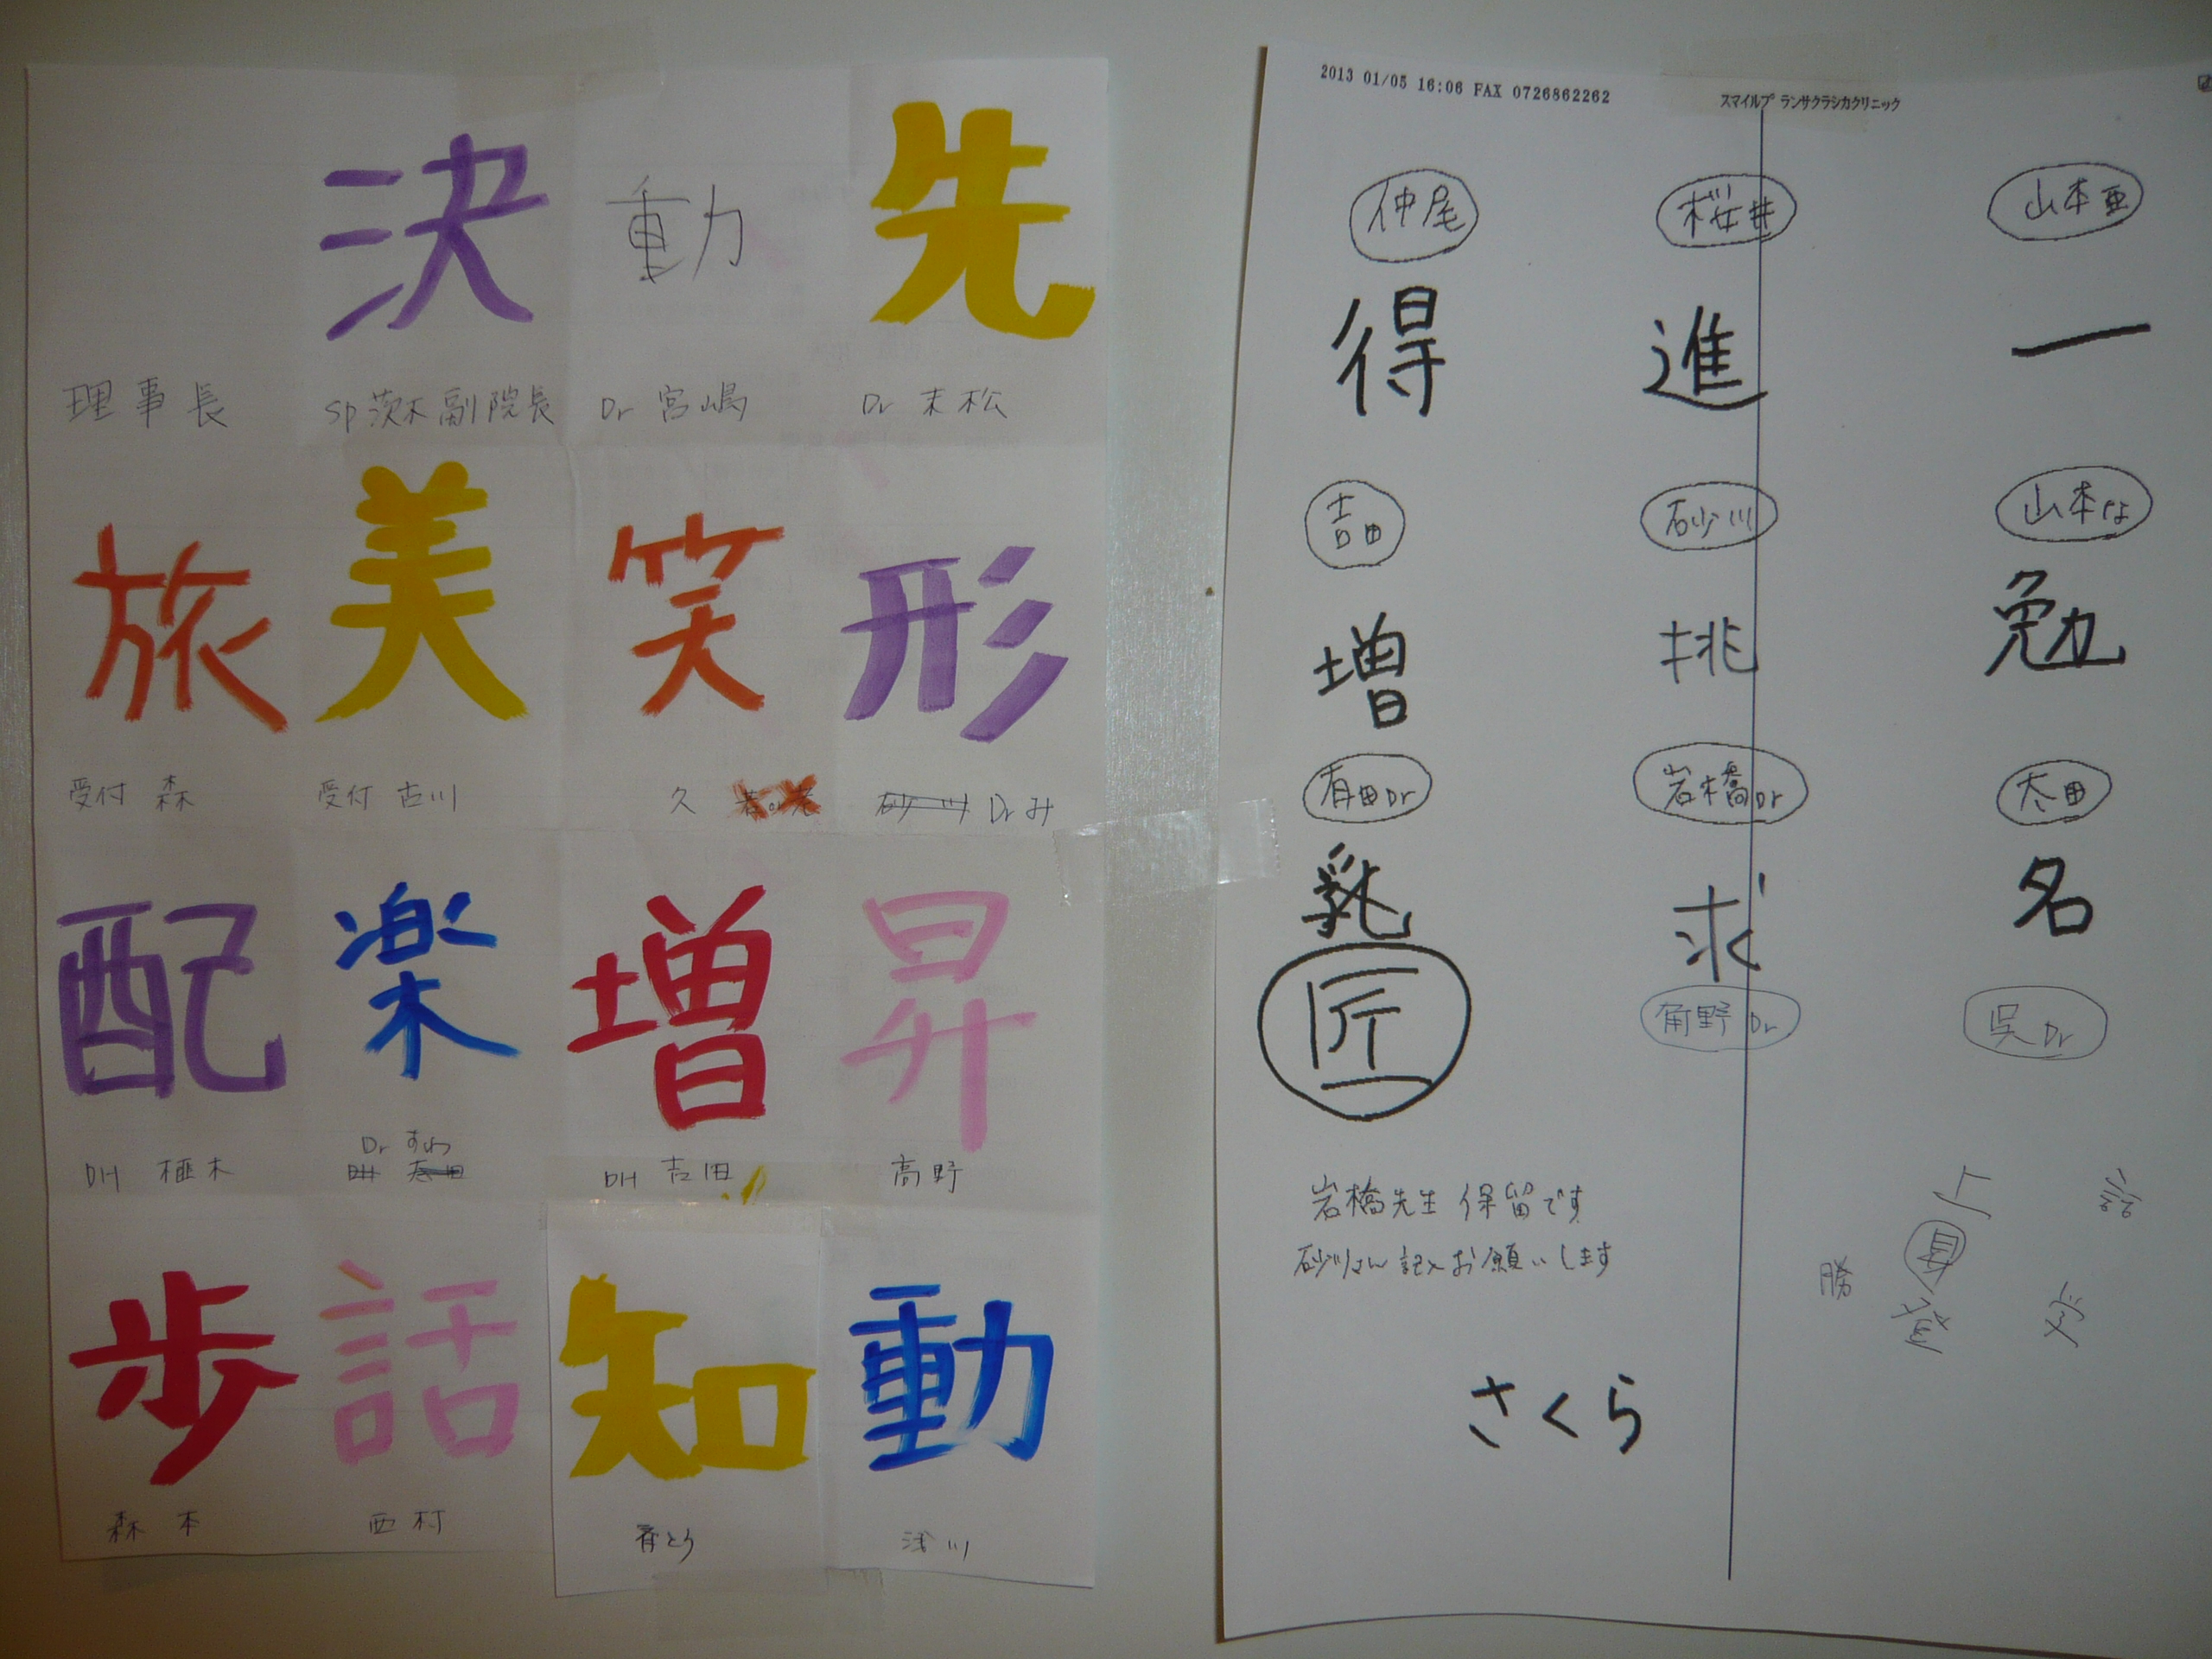 決 動 先
理事長 Sp茨木副院長 Dr 宮嶋 Dr 末松
旅 美 笑 形
受付 森 受付 古川 久 砂川 Dr み
配 楽 増 昇
Dr すわ
DH 榧木 DH 吉田 高野
歩 話 知 動
森 本 西村 斉とう 浅川
2013 01/05 16:06 FAX 0726862262 スマイルプランサクラシカクリニック
仲尾 桜井 山本亜
得 進 一
吉田 砂川 山本な
増 挑 勉
有田Dr 岩橋Dr 太田
乳 求 名
匠 角野Dr 呉Dr
岩橋先生 保留です
砂川さん 記入お願いします
上
勝
登
さくら